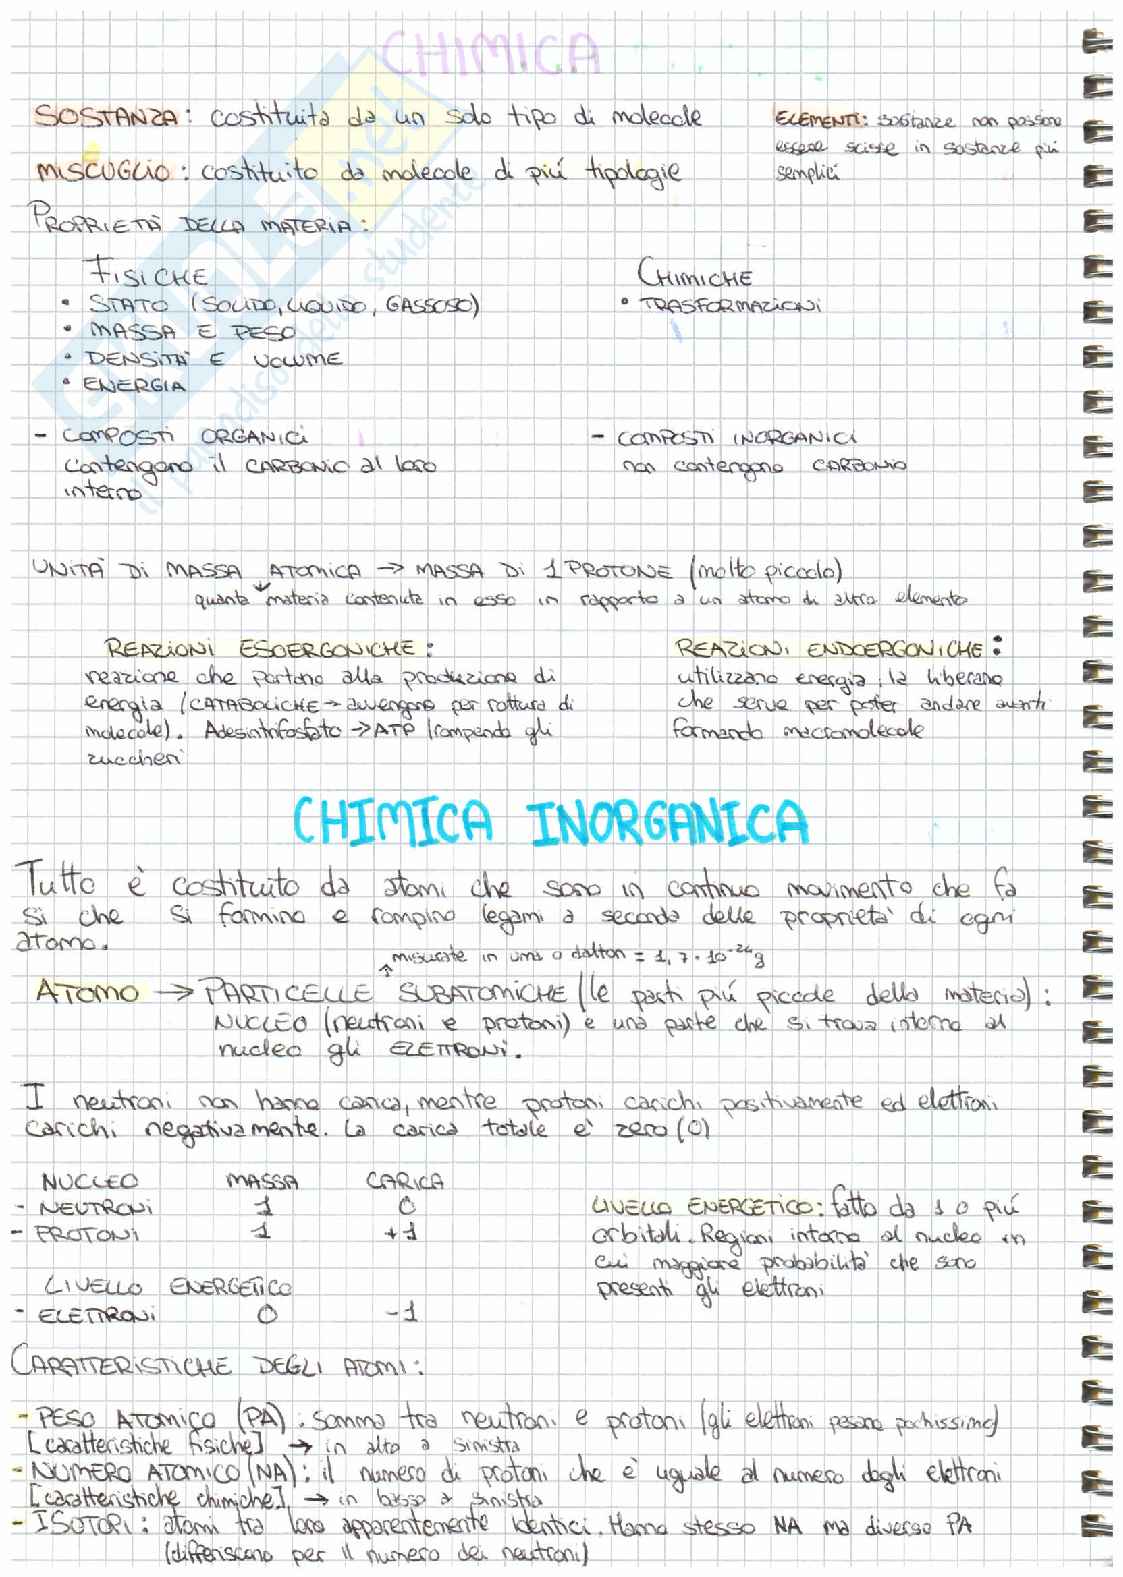 CHIMICA
SOSTANZA: costituita da un solo tipo di molecole
ELEMENTI: sostanze non possono
essere scisse in sostanze più
semplici
MISCUGLIO: costituito da molecole di piú tipologie
PROPRIETÀ DELLA MATERIA:
FISICHE
• STATO (SOLIDO, LIQUIDO, GASSOSO)
• MASSA E PESO
• DENSITA' E VOLUME
• ENERGIA
CHIMICHE
• TRASFORMAZIONI
- COMPOSTI ORGANICI
Contengono il CARBONIO al loro
interno
- COMPOSTI INORGANICI
non contengono CARBONIO
UNITA' DI MASSA ATOMICA → MASSA DI 1 PROTONE (molto piccolo)
quanta materia contenuta in esso in rapporto a un atomo di altro elemento
REAZIONI ESOERGONICHE:
reazione che portano alla produzione di
energia (CATABOLICHE → avvengono per rottura di
molecole). Adesintrifosfato → ATP (rompendo gli
zuccheri
REAZIONI ENDOERGONICHE:
utilizzano energia, la liberano
che serve per poter andare avanti
formando macromolecole
CHIMICA INORGANICA
Tutto è costituito da atomi che sono in continuo movimento che fa
si che si formino e rompino legami a seconda delle proprietà di ogni
atomo.
misurate in uma o dalton = 1,7 · 10⁻²⁴g
ATOMO → PARTICELLE SUBATOMICHE (le parti piú piccole della materia):
NUCLEO (neutroni e protoni) e una parte che si trova intorno al
nucleo gli ELETTRONI.
I neutroni non hanno carica, mentre protoni carichi positivamente ed elettroni
carichi negativamente. La carica totale e' zero (0)
NUCLEO MASSA CARICA
- NEUTRONI 1 0
- PROTONI 1 +1
LIVELLO ENERGETICO
- ELETTRONI 0 -1
LIVELLO ENERGETICO: fatto da 1 o piú
orbitali. Regioni intorno al nucleo in
cui maggiore probabilita' che sono
presenti gli elettroni
CARATTERISTICHE DEGLI ATOMI:
- PESO ATOMICO (PA): somma tra neutroni e protoni (gli elettroni pesano pochissimo)
[caratteristiche fisiche] → in alto a sinistra
- NUMERO ATOMICO (NA): il numero di protoni che e' uguale al numero degli elettroni
[caratteristiche chimiche] → in basso a sinistra
- ISOTOPI: atomi tra loro apparentemente identici. Hanno stesso NA ma diverso PA
(differiscono per il numero dei neutroni)